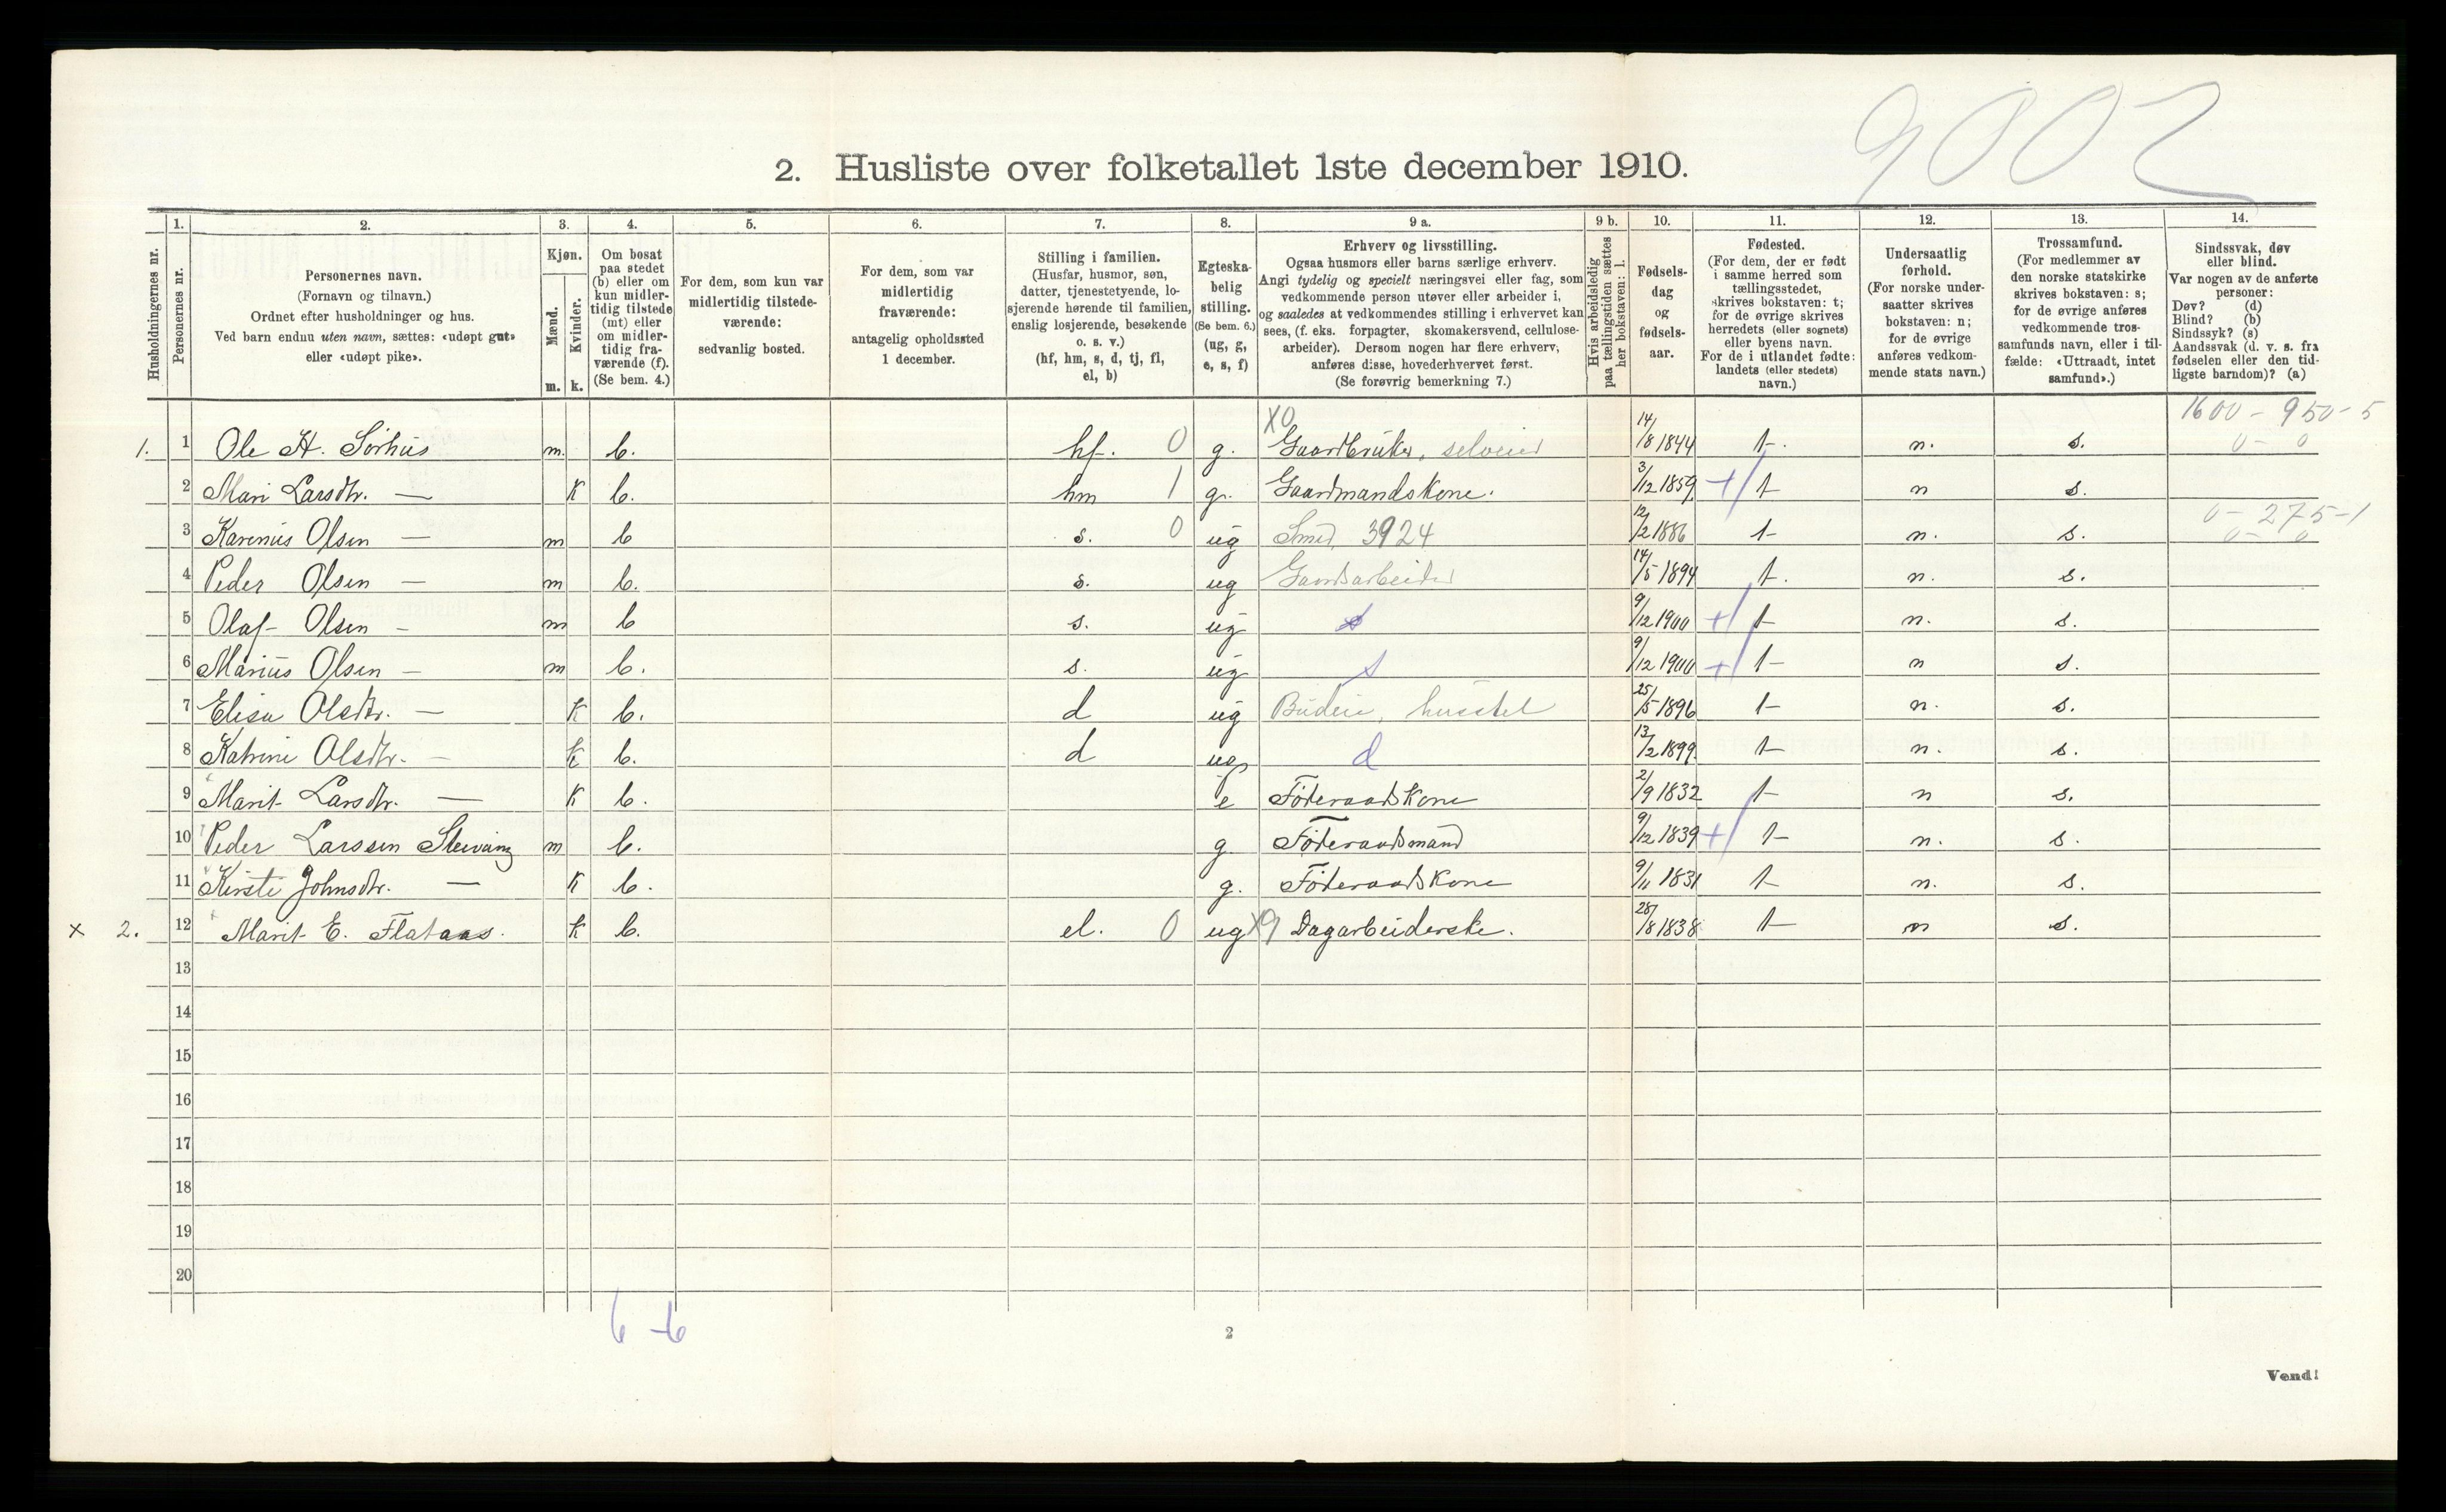 9002
2. Husliste over folketallet 1ste december 1910.
Husholdningernes nr.
1. Personernes nr.
2. Personernes navn.
(Fornavn og tilnavn.)
Ordnet efter husholdninger og hus.
Ved barn endnu uten navn, sættes: «udøpt gut»
eller «udøpt pike».
3. Kjøn.
Mænd. m.
Kvinder. k.
4. Om bosat
paa stedet
(b) eller om
kun midler-
tidig tilstede
(mt) eller
om midler-
tidig fra-
værende (f).
(Se bem. 4.)
5. For dem, som kun var
midlertidig tilstede-
værende:
sedvanlig bosted.
6. For dem, som var
midlertidig
fraværende:
antagelig opholdssted
1 december.
7. Stilling i familien.
(Husfar, husmor, søn,
datter, tjenestetyende, lo-
sjerende hørende til familien,
enslig losjerende, besøkende
o. s. v.)
(hf, hm, s, d, tj, fl,
el, b)
8. Egteska-
belig
stilling.
(Se bem. 6.)
(ug, g,
e, s, f)
9 a. Erhverv og livsstilling.
Ogsaa husmors eller barns særlige erhverv.
Angi tydelig og specielt næringsvei eller fag, som
vedkommende person utøver eller arbeider i,
og saaledes at vedkommendes stilling i erhvervet kan
sees, (f. eks. forpagter, skomakersvend, cellulose-
arbeider). Dersom nogen har flere erhverv,
anføres disse, hovederhvervet først.
(Se forøvrig bemerkning 7.)
9 b. Hvis arbeidsledig
paa tællingstiden sættes
her bokstaven: l.
10. Fødsels-
dag
og
fødsels-
aar.
11. Fødested.
(For dem, der er født
i samme herred som
tællingsstedet,
skrives bokstaven: t;
for de øvrige skrives
herredets (eller sognets)
eller byens navn.
For de i utlandet fødte:
landets (eller stedets)
navn.)
12. Undersaatlig
forhold.
(For norske under-
saatter skrives
bokstaven: n;
for de øvrige
anføres vedkom-
mende stats navn.)
13. Trossamfund.
(For medlemmer av
den norske statskirke
skrives bokstaven: s;
for de øvrige anføres
vedkommende tros-
samfunds navn, eller i til-
fælde: «Uttraadt, intet
samfund».)
14. Sindssvak, døv
eller blind.
Var nogen av de anførte
personer:
Døv? (d)
Blind? (b)
Sindssyk? (s)
Aandssvak (d. v. s. fra
fødselen eller den tid-
ligste barndom)? (a)
X0 1600 - 950 - 5
1. 1 Ole H. Sörhus m. b. hf. 0 g. Gaardbruker, selveier 14/8 1844 t. n. s. 0 - 0
2 Mari Larsdtr. — k b. hm 1 g. Gaardmandskone. 3/12 1859 + t n s.
0 - 275 - 1
3 Karenius Olsen — m b s. 0 ug Smed 3924 12/2 1886 t n. s. 0 - 0
4 Peder Olsen — m b. s. ug Gaardsarbeider 14/5 1894 t. n. s.
5 Olaf Olsen — m b s. ug s 9/12 1900 + t n. s.
6 Marius Olsen — m b. s. ug s 9/12 1900 + t n s.
7 Elisa Olsdtr. — k b. d ug Budeie, husstel 25/5 1896 t n. s.
8 Katrine Olsdtr. — k b. d ug d 13/2 1899 t n. s.
9 Marit Larsdtr. — k b. e Föderaadskone 2/9 1832 t n s.
10 Peder Larssen m b. g. Föderaadsmand 9/12 1839 + t n. s.
11 Kirsti Johnsdtr. — k b. g. Föderaadskone 9/11 1831 t n. s.
x 2. 12 Marit E. Flataas. k b. el. 0 ug X9 Dagarbeiderske. 28/8 1838 t n s.
13
14
15
16
17
18
19
20
6 - 6
2
Vend!